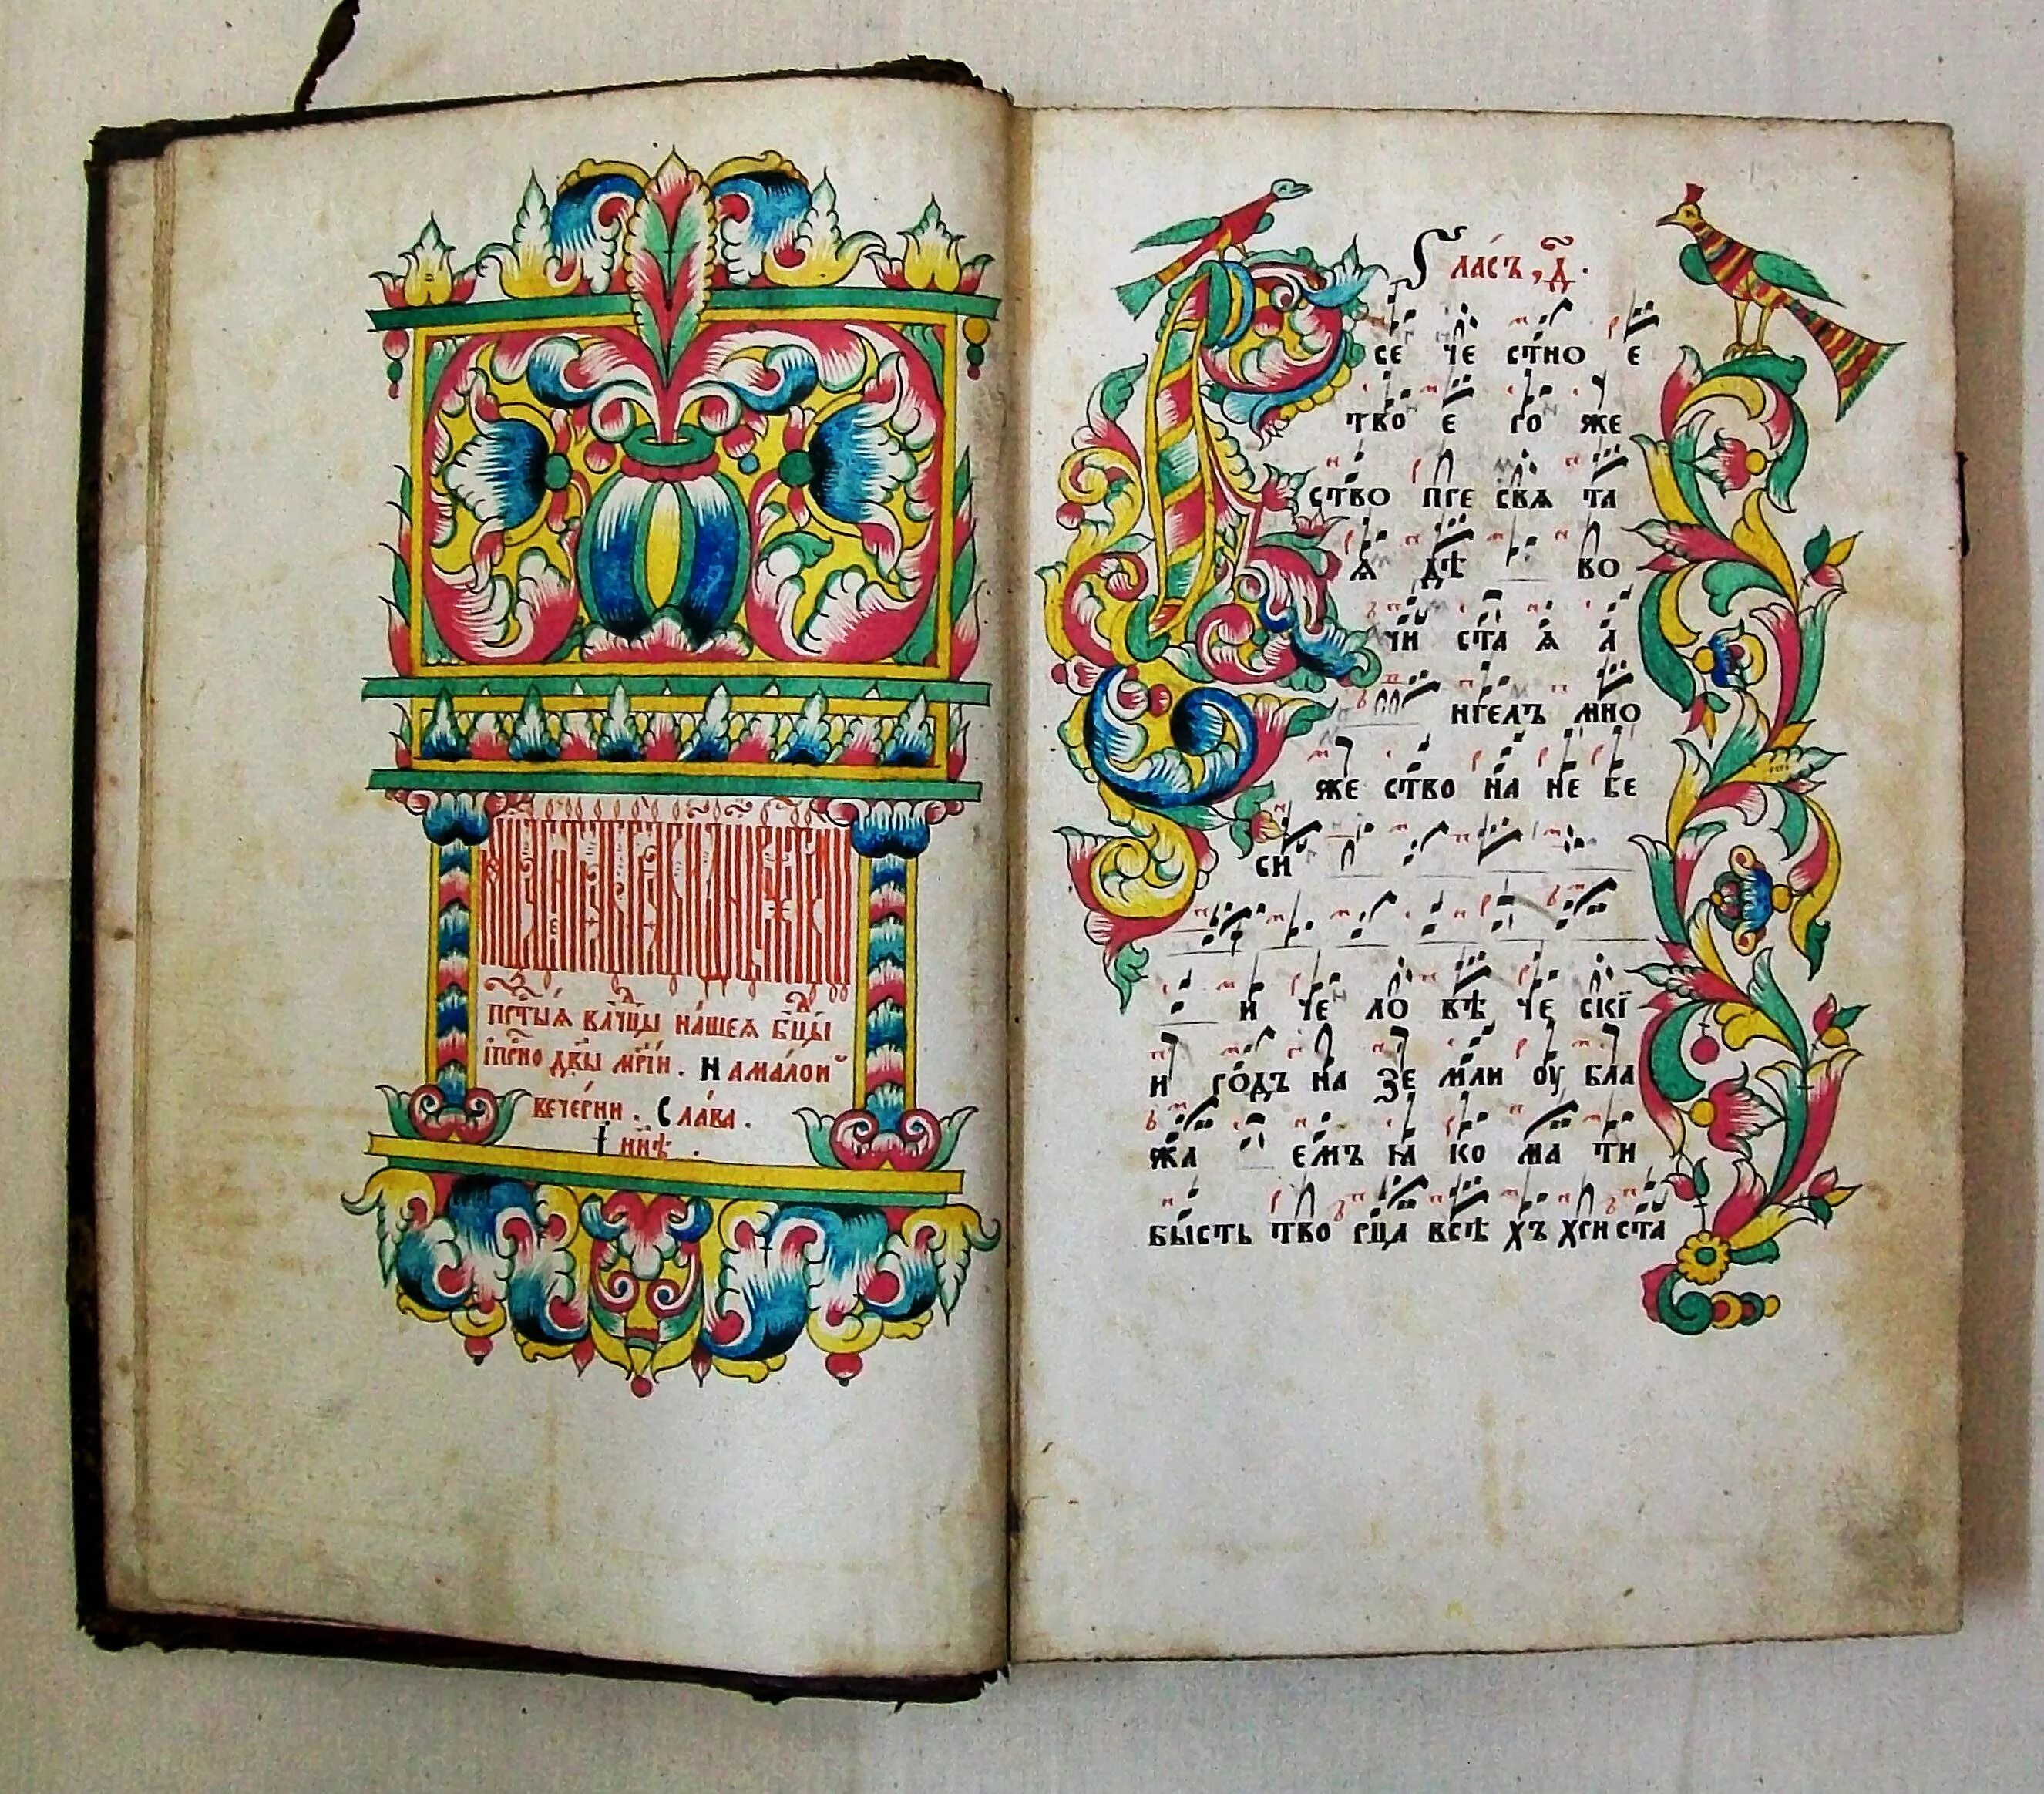 прⷭ҇тыѧ влⷣчцы на́шеѧ бцⷣы
іпрⷭ҇но дв҃ы мр҃і́и. На мало́и
вече́рни. Сла́ва.
І нн҃ѣ.
Гла́съ, д҃.
се че стно е
тво е го же
ство пре свѧ та
ѧ дѣ во
чи ста ѧ а
нгелъ мно
же ство на не бе
си
и че ло вѣ че скї
и родъ на зе мли оу бла
жа емъ ꙗ ко ма ти
бысть тво рца всѣ хъ хри ста